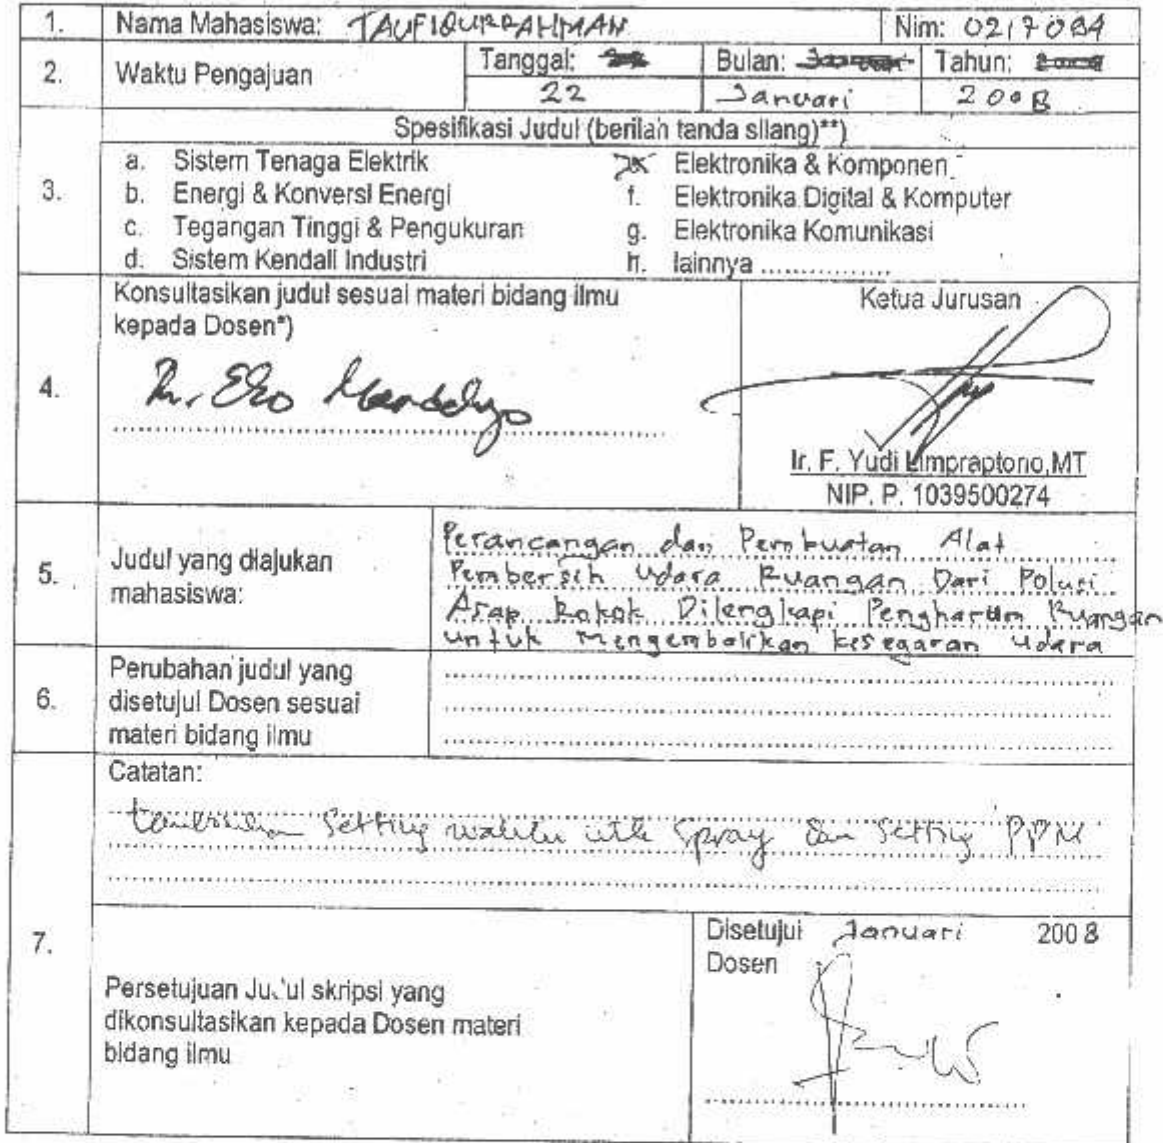 1. Nama Mahasiswa: TAUFIQURRAHMAN Nim: 0217094
2. Waktu Pengajuan Tanggal: Bulan: Januari Tahun:
22 Januari 2008
Spesifikasi Judul (berilah tanda silang)**)
3.
a. Sistem Tenaga Elektrik
b. Energi & Konversi Energi
c. Tegangan Tinggi & Pengukuran
d. Sistem Kendali Industri
Elektronika & Komponen
f. Elektronika Digital & Komputer
g. Elektronika Komunikasi
h. lainnya ...............
4.
Konsultasikan judul sesuai materi bidang ilmu
kepada Dosen*)
Eko
Ketua Jurusan
Ir. F. Yudi Limpraptono,MT
NIP. P. 1039500274
5.
Judul yang diajukan
mahasiswa:
Perancangan dan Pembuatan Alat
Pembersih Udara Ruangan Dari Polusi
Asap Rokok Dilengkapi Pengharum Ruangan
untuk mengembalikan kesegaran udara
6.
Perubahan judul yang
disetujui Dosen sesuai
materi bidang ilmu
7.
Catatan:
Setting waktu utk Spray dan Setting PPM
Persetujuan Judul skripsi yang
dikonsultasikan kepada Dosen materi
bidang ilmu
Disetujui Januari 2008
Dosen